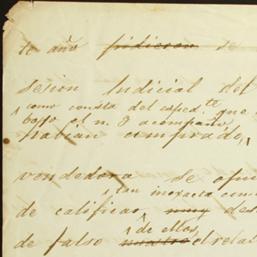 te año pidieron se
sesion Judicial del
como consta del exped.te que
bajo el n. 8 acompaño,
habian comprado,
vendedora se opu
tan inexacta como
de calificar muy des
de ellos
de falso nuestro relas